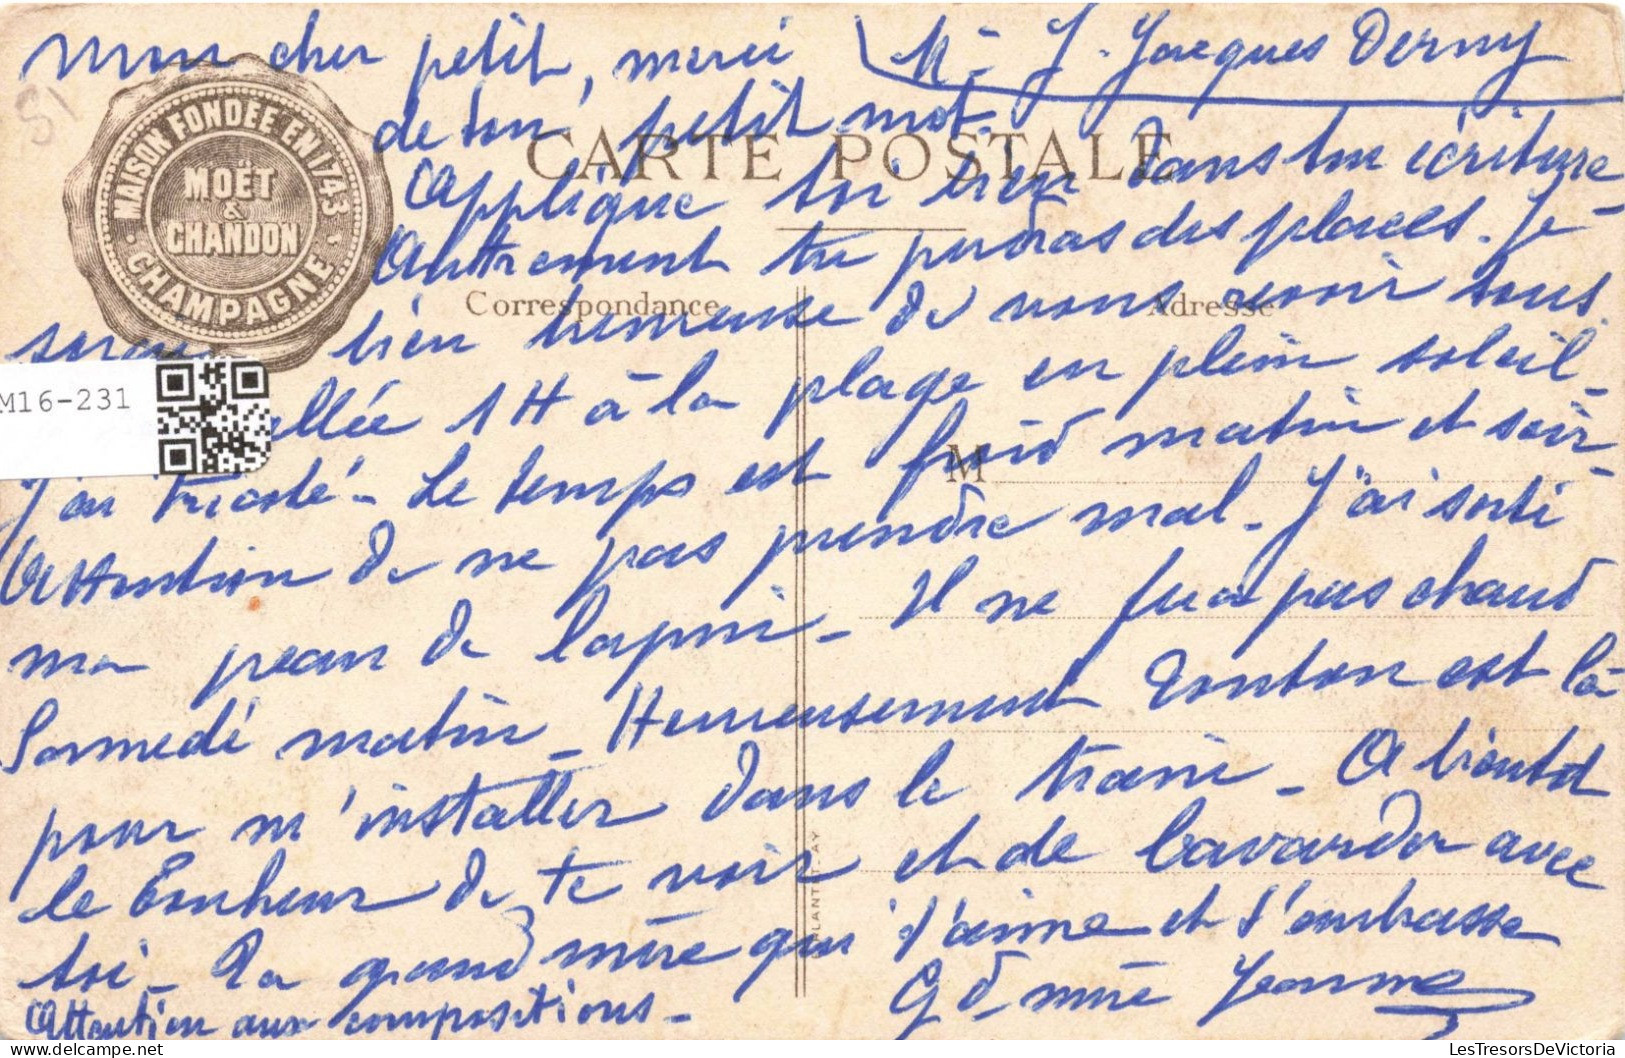 Mon cher petit, merci
Mr J. Jacques Derny
de ton petit mot.
Applique toi bien dans ton écriture
Autrement tu perdras des places. Je
serais bien heureuse de vous revoir tous.
allée 1 H à la plage en plein soleil -
J'ai tricoté - Le temps est froid matin et soir -
Attention de ne pas prendre mal - J'ai sorti
ma peau de lapin - Il ne fera pas chaud
Samedi matin - Heureusement Tonton est là
pour m'installer dans le train - A bientôt
le Bonheur de te voir et de bavarder avec
toi - Ta grand mère qui t'aime et t'embrasse
Gd mère Jeanne
Attention aux compositions -
MAISON FONDÉE EN 1743
MOËT
&
CHANDON
CHAMPAGNE
CARTE POSTALE
Correspondance
Adresse
M
M16-231
51
LesTresorsDeVictoria